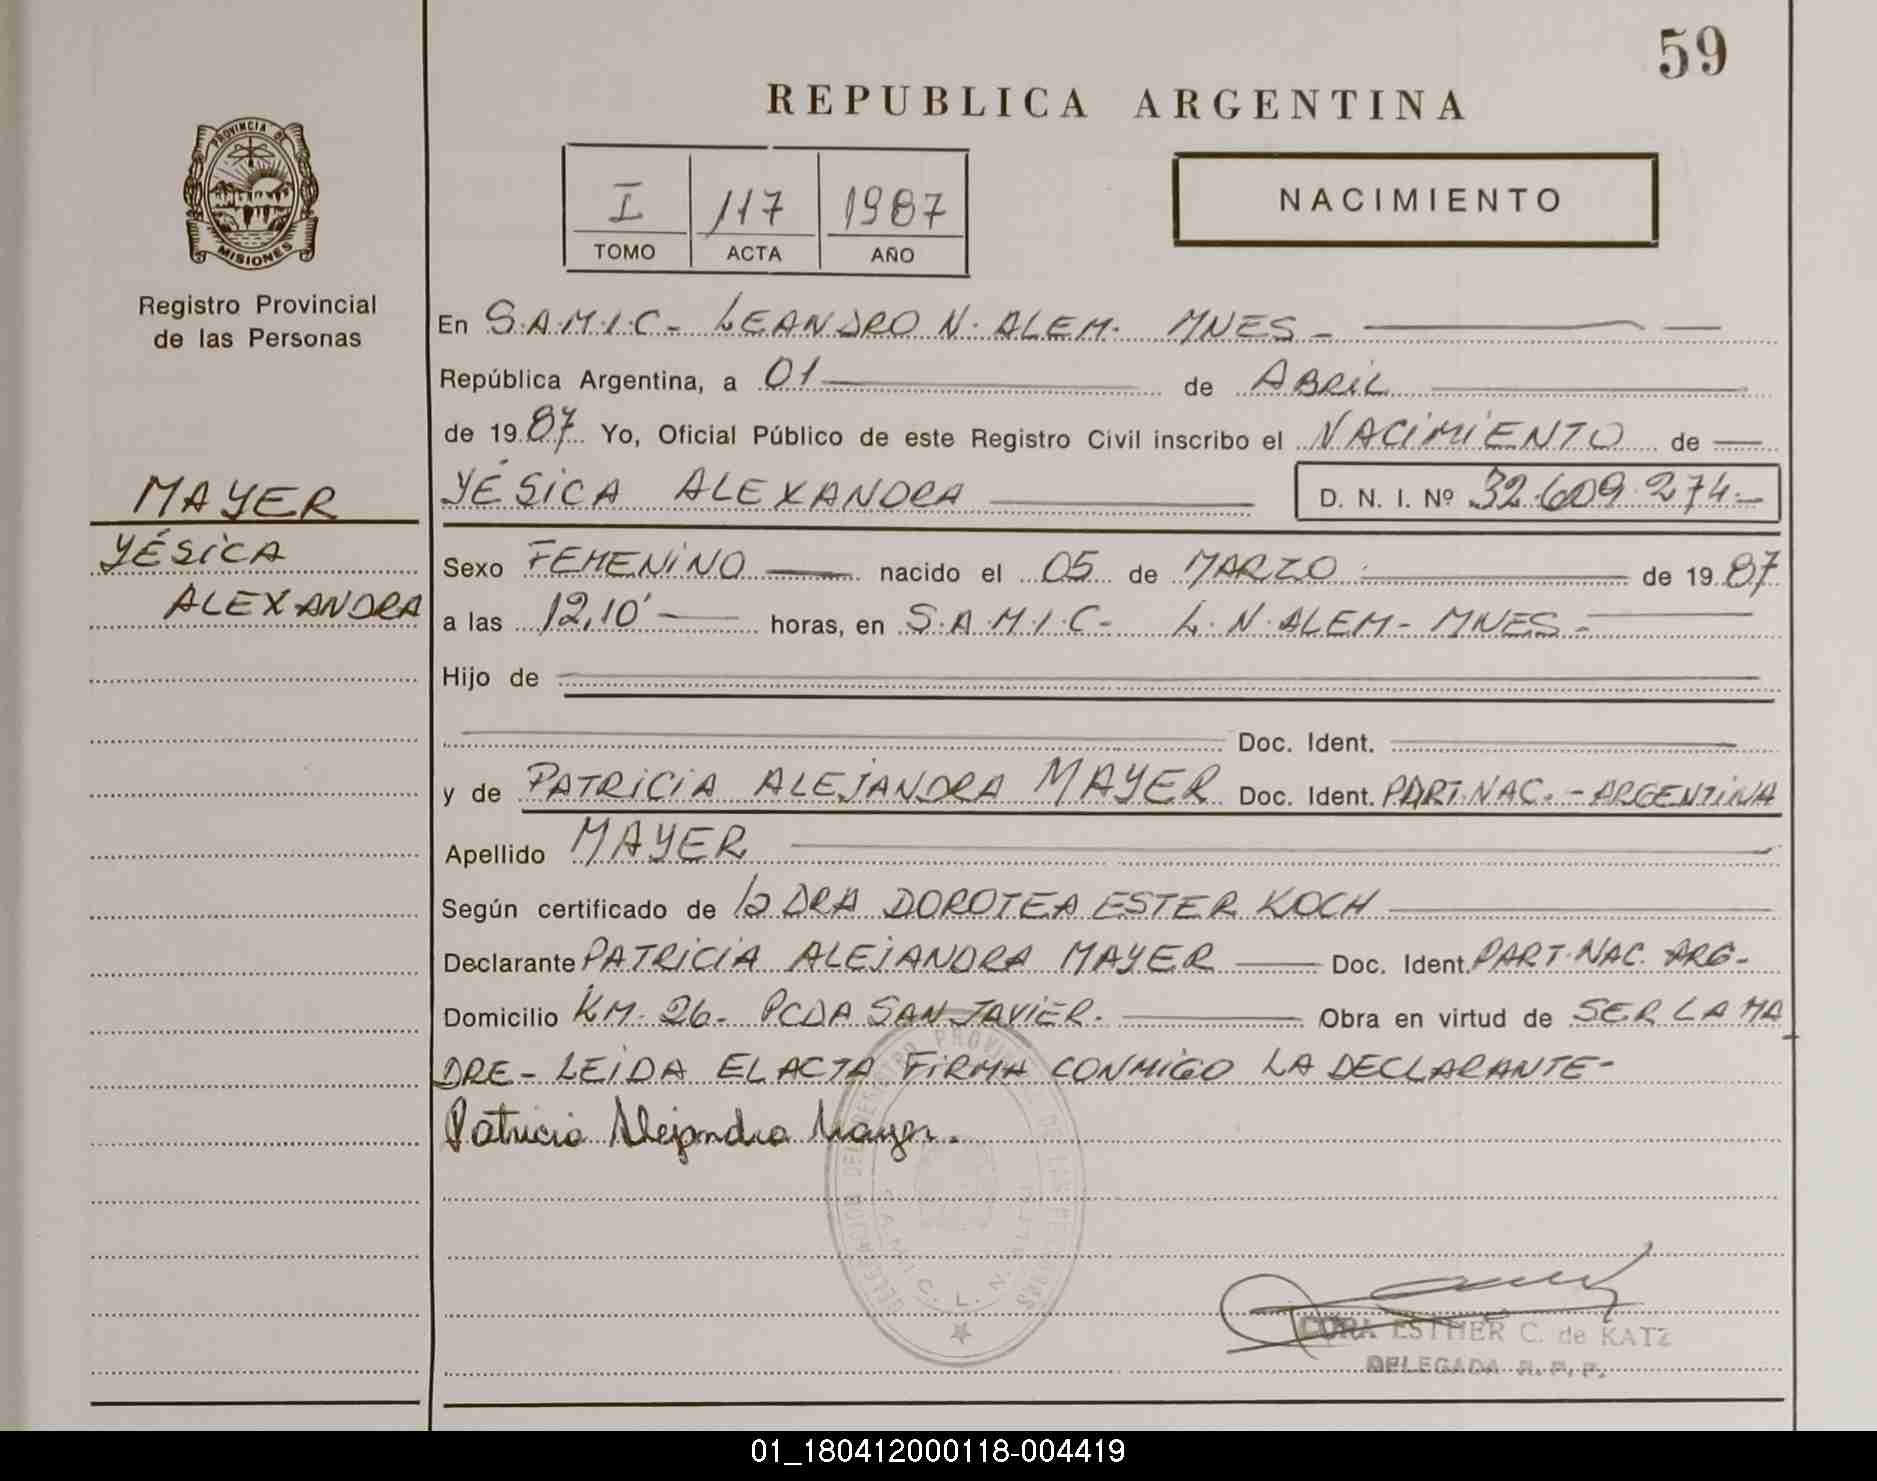 59
REPUBLICA ARGENTINA
PROVINCIA DE
MISIONES
Registro Provincial
de las Personas
I 117 1987
TOMO ACTA AÑO
NACIMIENTO
En S.A.M.I.C- LEANDRO N. ALEM. MNES-
República Argentina, a 01 de ABRIL
de 1987 Yo, Oficial Público de este Registro Civil inscribo el NACIMIENTO de
YÉSICA ALEXANDRA D. N. I. Nº 32.609.274.-
MAYER
YÉSICA
ALEXANDRA
Sexo FEMENINO nacido el 05 de MARZO de 1987
a las 12,10' horas, en S.A.M.I.C- L.N.ALEM- MNES-
Hijo de
Doc. Ident.
y de PATRICIA ALEJANDRA MAYER Doc. Ident. PART.NAC.-ARGENTINA
Apellido MAYER
Según certificado de la DRA DOROTEA ESTER KOCH
Declarante PATRICIA ALEJANDRA MAYER Doc. Ident. PART.NAC. ARG-
Domicilio KM-26- PCDA SAN JAVIER. Obra en virtud de SER LA MA
DRE- LEIDA EL ACTA FIRMA CONMIGO LA DECLARANTE-
Patricia Alejandra Mayer.
CORA ESTHER C. de KATZ
DELEGADA R. P. P.
01_180412000118-004419